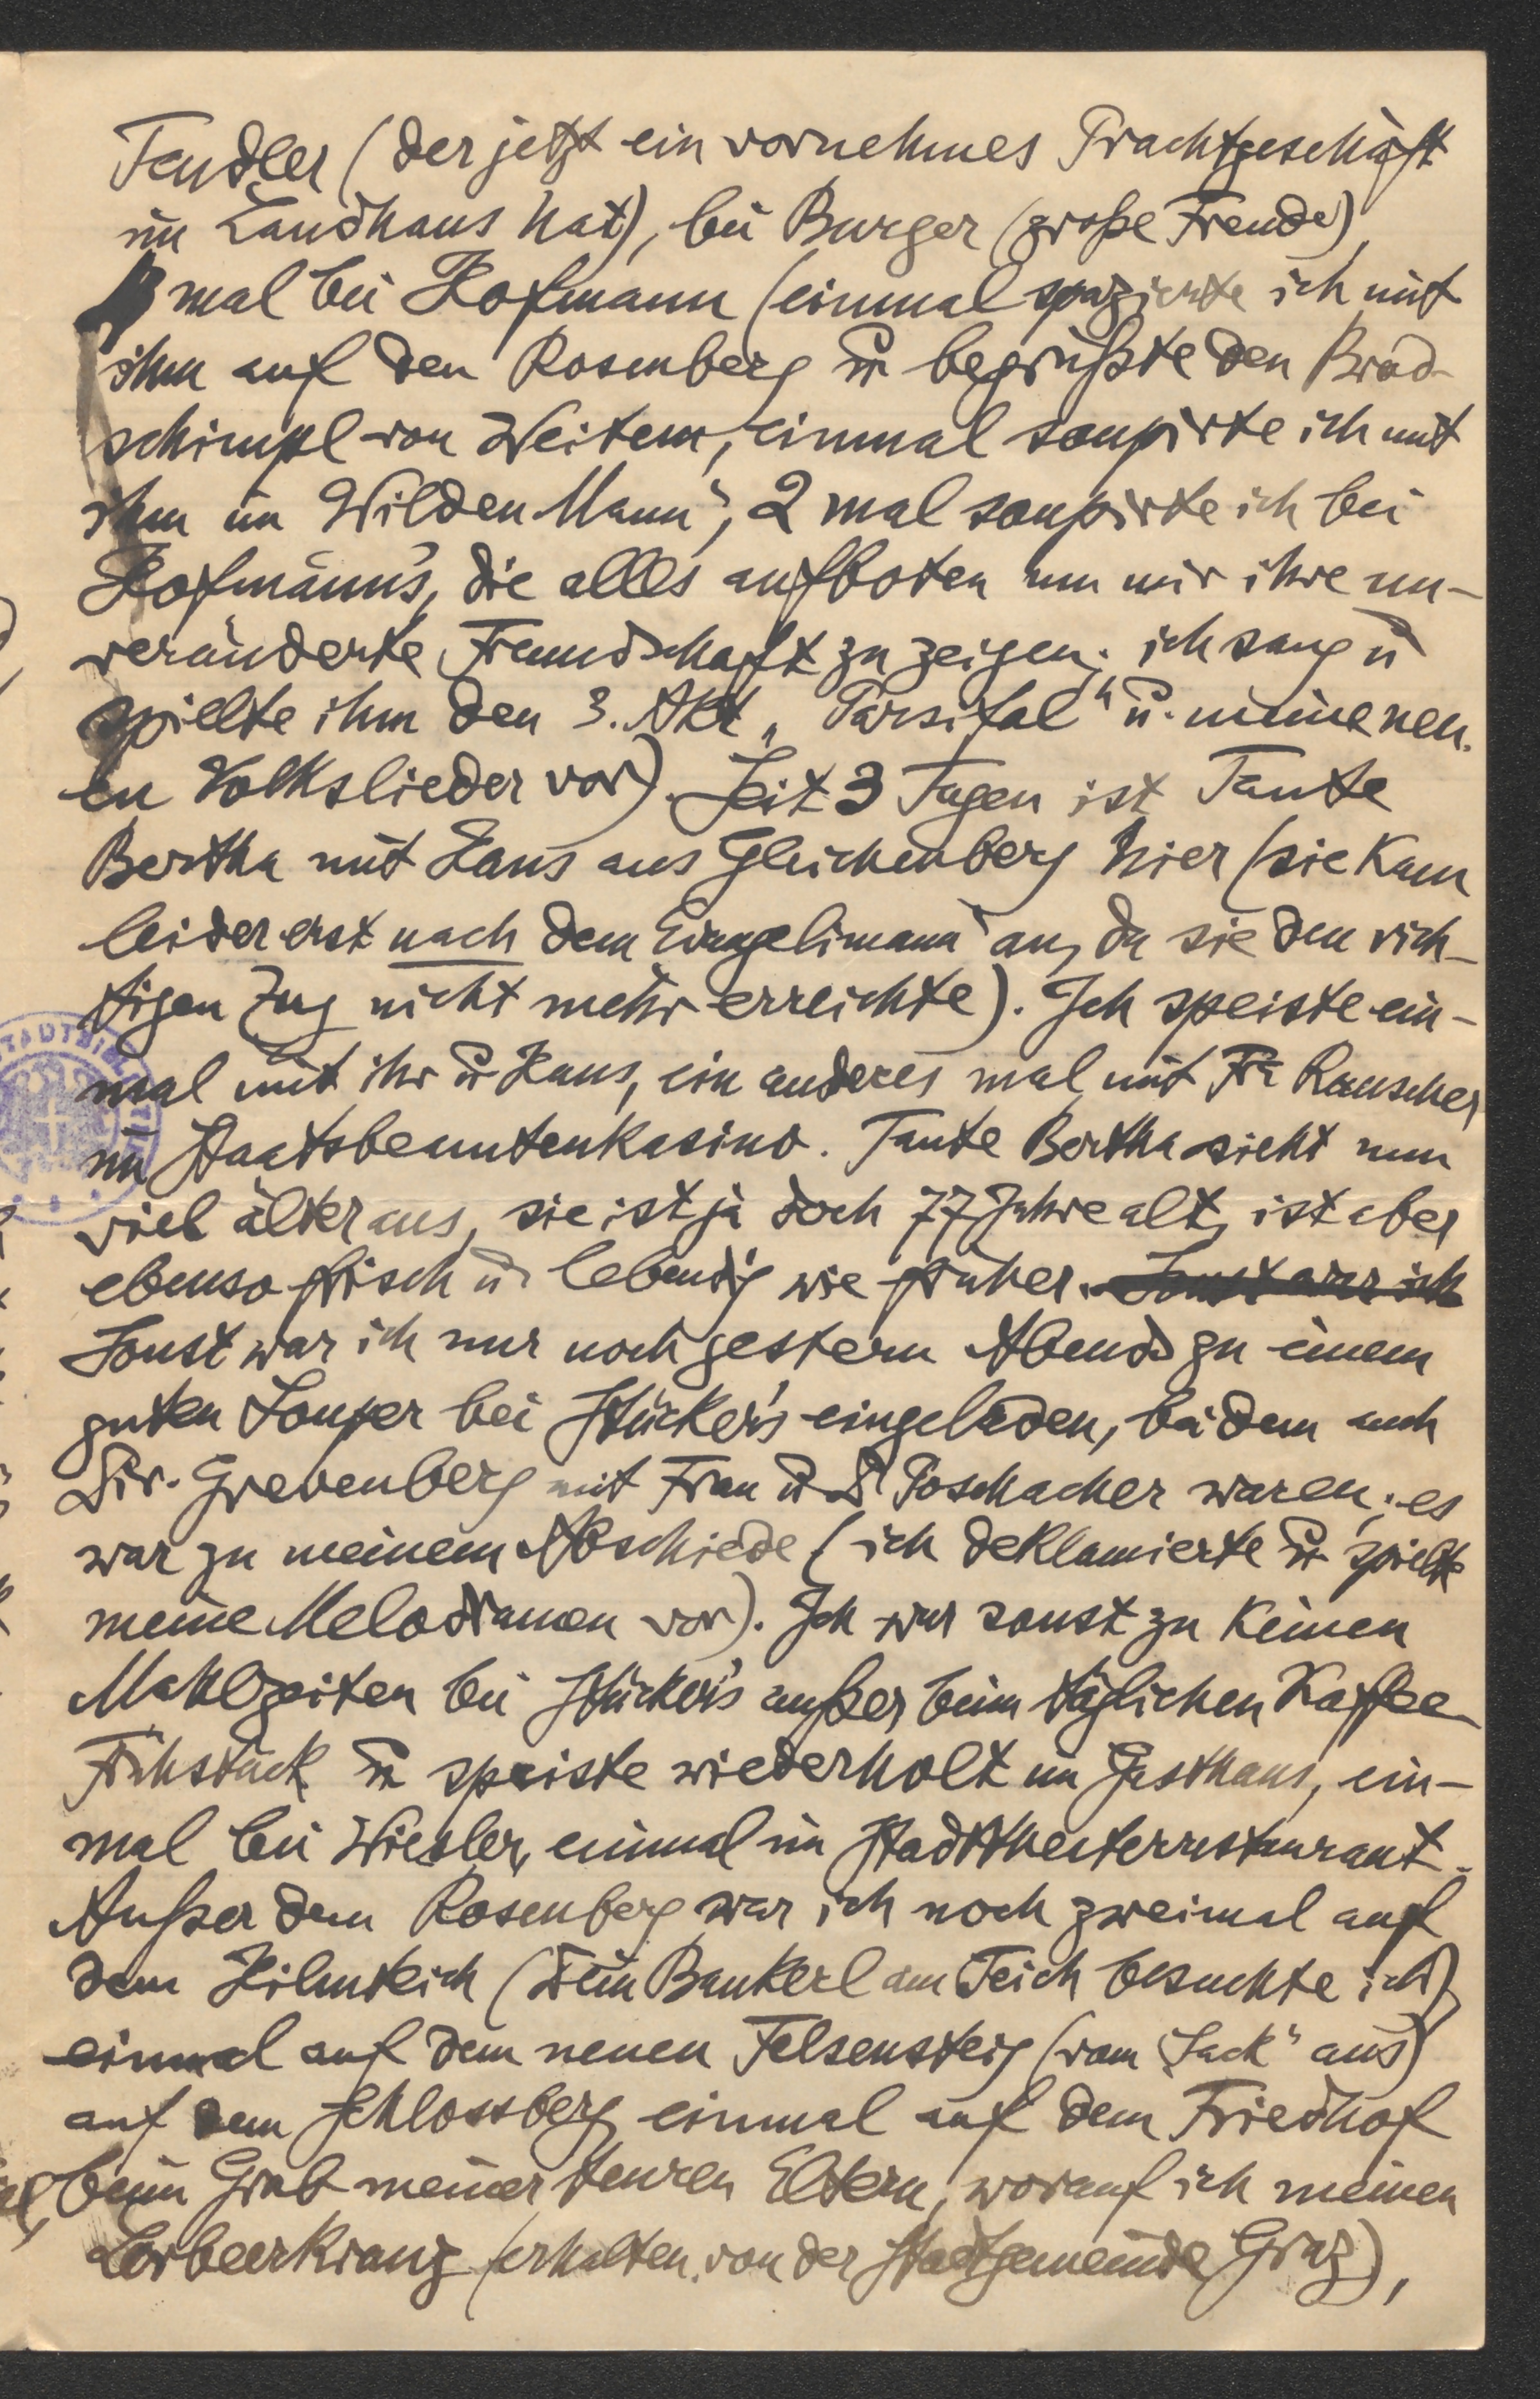 Tendler (der jetzt ein vornehmes Prachtgeschäft
im Landhaus hat), bei Burger (große Freude),
mal bei Hofmann (einmal spazierte ich mit
ihm auf den Rosenberg u begrüßte den Brad-
schimpl von Weitem, einmal soupirte ich mit
ihm im Wilden Mann", 2 mal soupirte ich bei
Hofmann's, die alles aufboten um mir ihre un-
veränderte Freundschaft zu zeigen; ich sang u
spielte ihm den 3. Akt „Parsifal" u. meine neu-
en Volkslieder vor). Seit 3 Tagen ist Tante
Bertha mit Hans aus Gleichenberg hier (sie kam
leider erst nach dem Evangelimann" an, da sie den rich-
tigen Zug nicht mehr erreichte). Ich speiste ein-
mal mit ihr u Hans, ein anderes mal mit Fr. Rauscher
im Staatsbeamtenkasino. Tante Bertha sieht nun
viel älter aus, sie ist ja doch 77 Jahre alt, ist aber
ebenso frisch u lebendig wie früher. Sonst war ich
Sonst war ich nur noch gestern Abend zu einem
guten Souper bei Stücker's eingeladen, bei dem auch
Dir. Grevenberg mit Frau u Poschacher waren; es
war zu meinem Abschiede (ich deklamierte u spielte
meine Melodramen vor). Ich war sonst zu keinen
Mahlzeiten bei Stücker's außer beim täglichen Kaffee
Frühstück u speiste wiederholt im Gasthaus, ein-
mal bei Wiesler, einmal im Stadttheaterrestaurant.
Außer dem Rosenberg war ich noch zweimal auf
dem Hilmteich (Dein Bankerl am Teich besuchte ich)
einmal auf dem neuen Felsensteig (vom „Sack" aus)
auf dem Schlossberg einmal auf dem Friedhof
beim Grab meiner teuren Eltern, worauf ich meinen
Lorbeerkranz (erhalten von der Stadtgemeinde Graz),